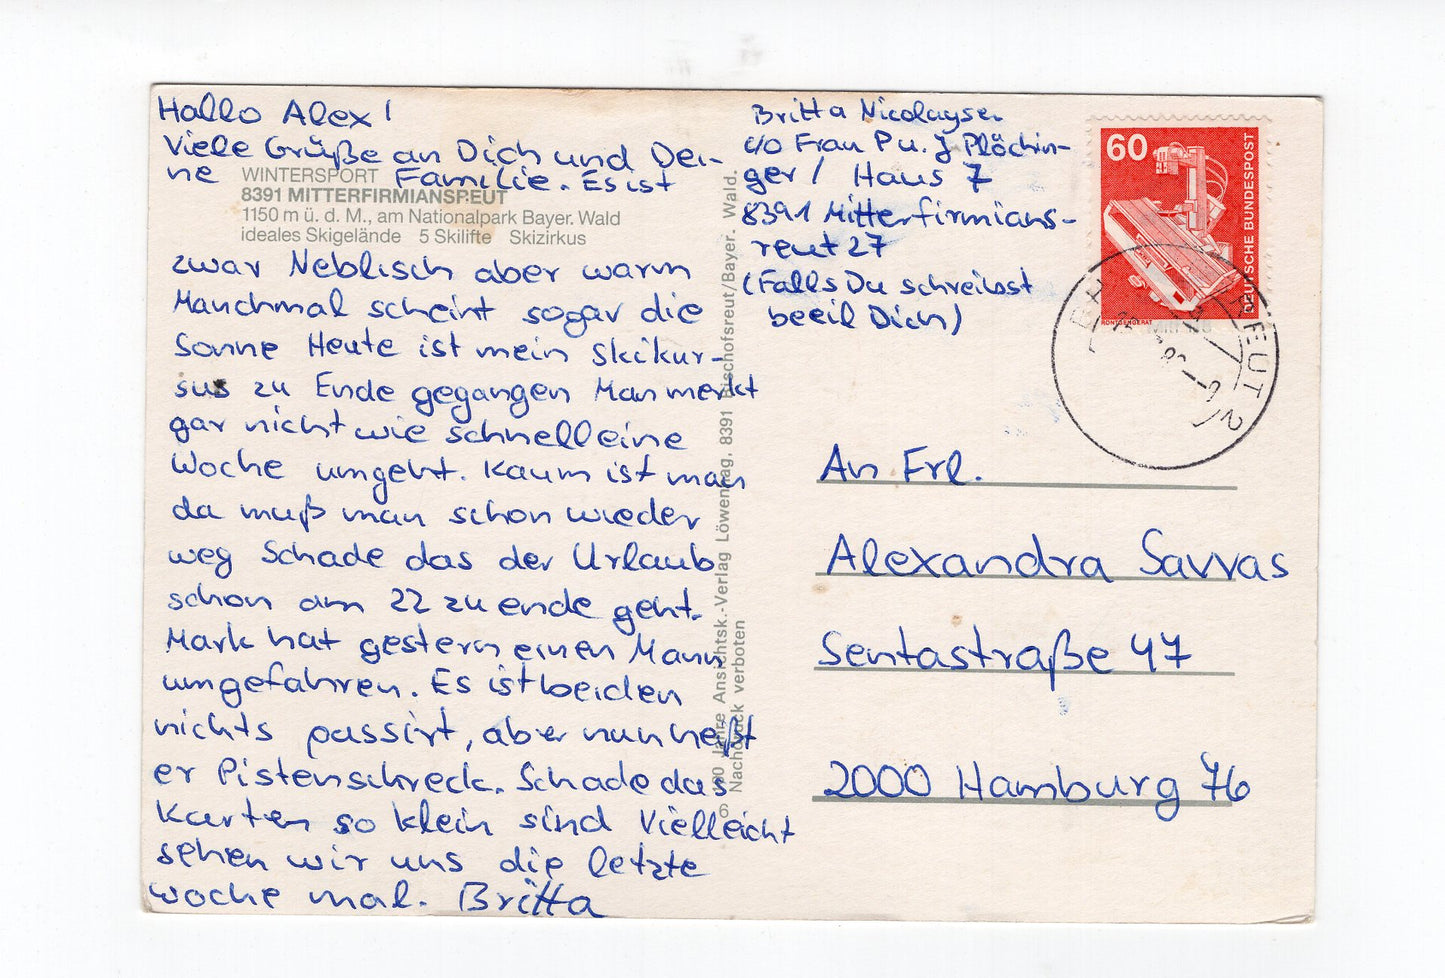 Hallo Alex!
Viele Grüße an Dich und Dei-
ne Familie. Es ist
WINTERSPORT
8391 MITTERFIRMIANSREUT
1150 m ü. d. M., am Nationalpark Bayer. Wald
ideales Skigelände 5 Skilifte Skizirkus
zwar Neblisch aber warm
Manchmal scheint sogar die
Sonne Heute ist mein Skikur-
sus zu Ende gegangen Man merkt
gar nicht wie schnell eine
Woche umgeht. Kaum ist man
da muß man schon wieder
weg Schade das der Urlaub
schon am 22 zu ende geht.
Mark hat gestern einen Mann
umgefahren. Es ist beiden
nichts passirt, aber nun heißt
er Pistenschreck. Schade das
Karten so klein sind Vielleicht
sehen wir uns die letzte
woche mal. Britta
Jahre Ansichtsk.-Verlag Löwenhag, 8391 Bischofsreut/Bayer. Wald.
Nachdruck verboten
Britta Nicolaysen
c/o Frau P u. J Plöchin-
ger / Haus 7
8391 Mitterfirmians-
reut 27
(Falls Du schreibst
beeil Dich)
60
DEUTSCHE BUNDESPOST
RÖNTGENGERÄT
REUT 2
An Frl.
Alexandra Savvas
Sentastraße 47
2000 Hamburg 76